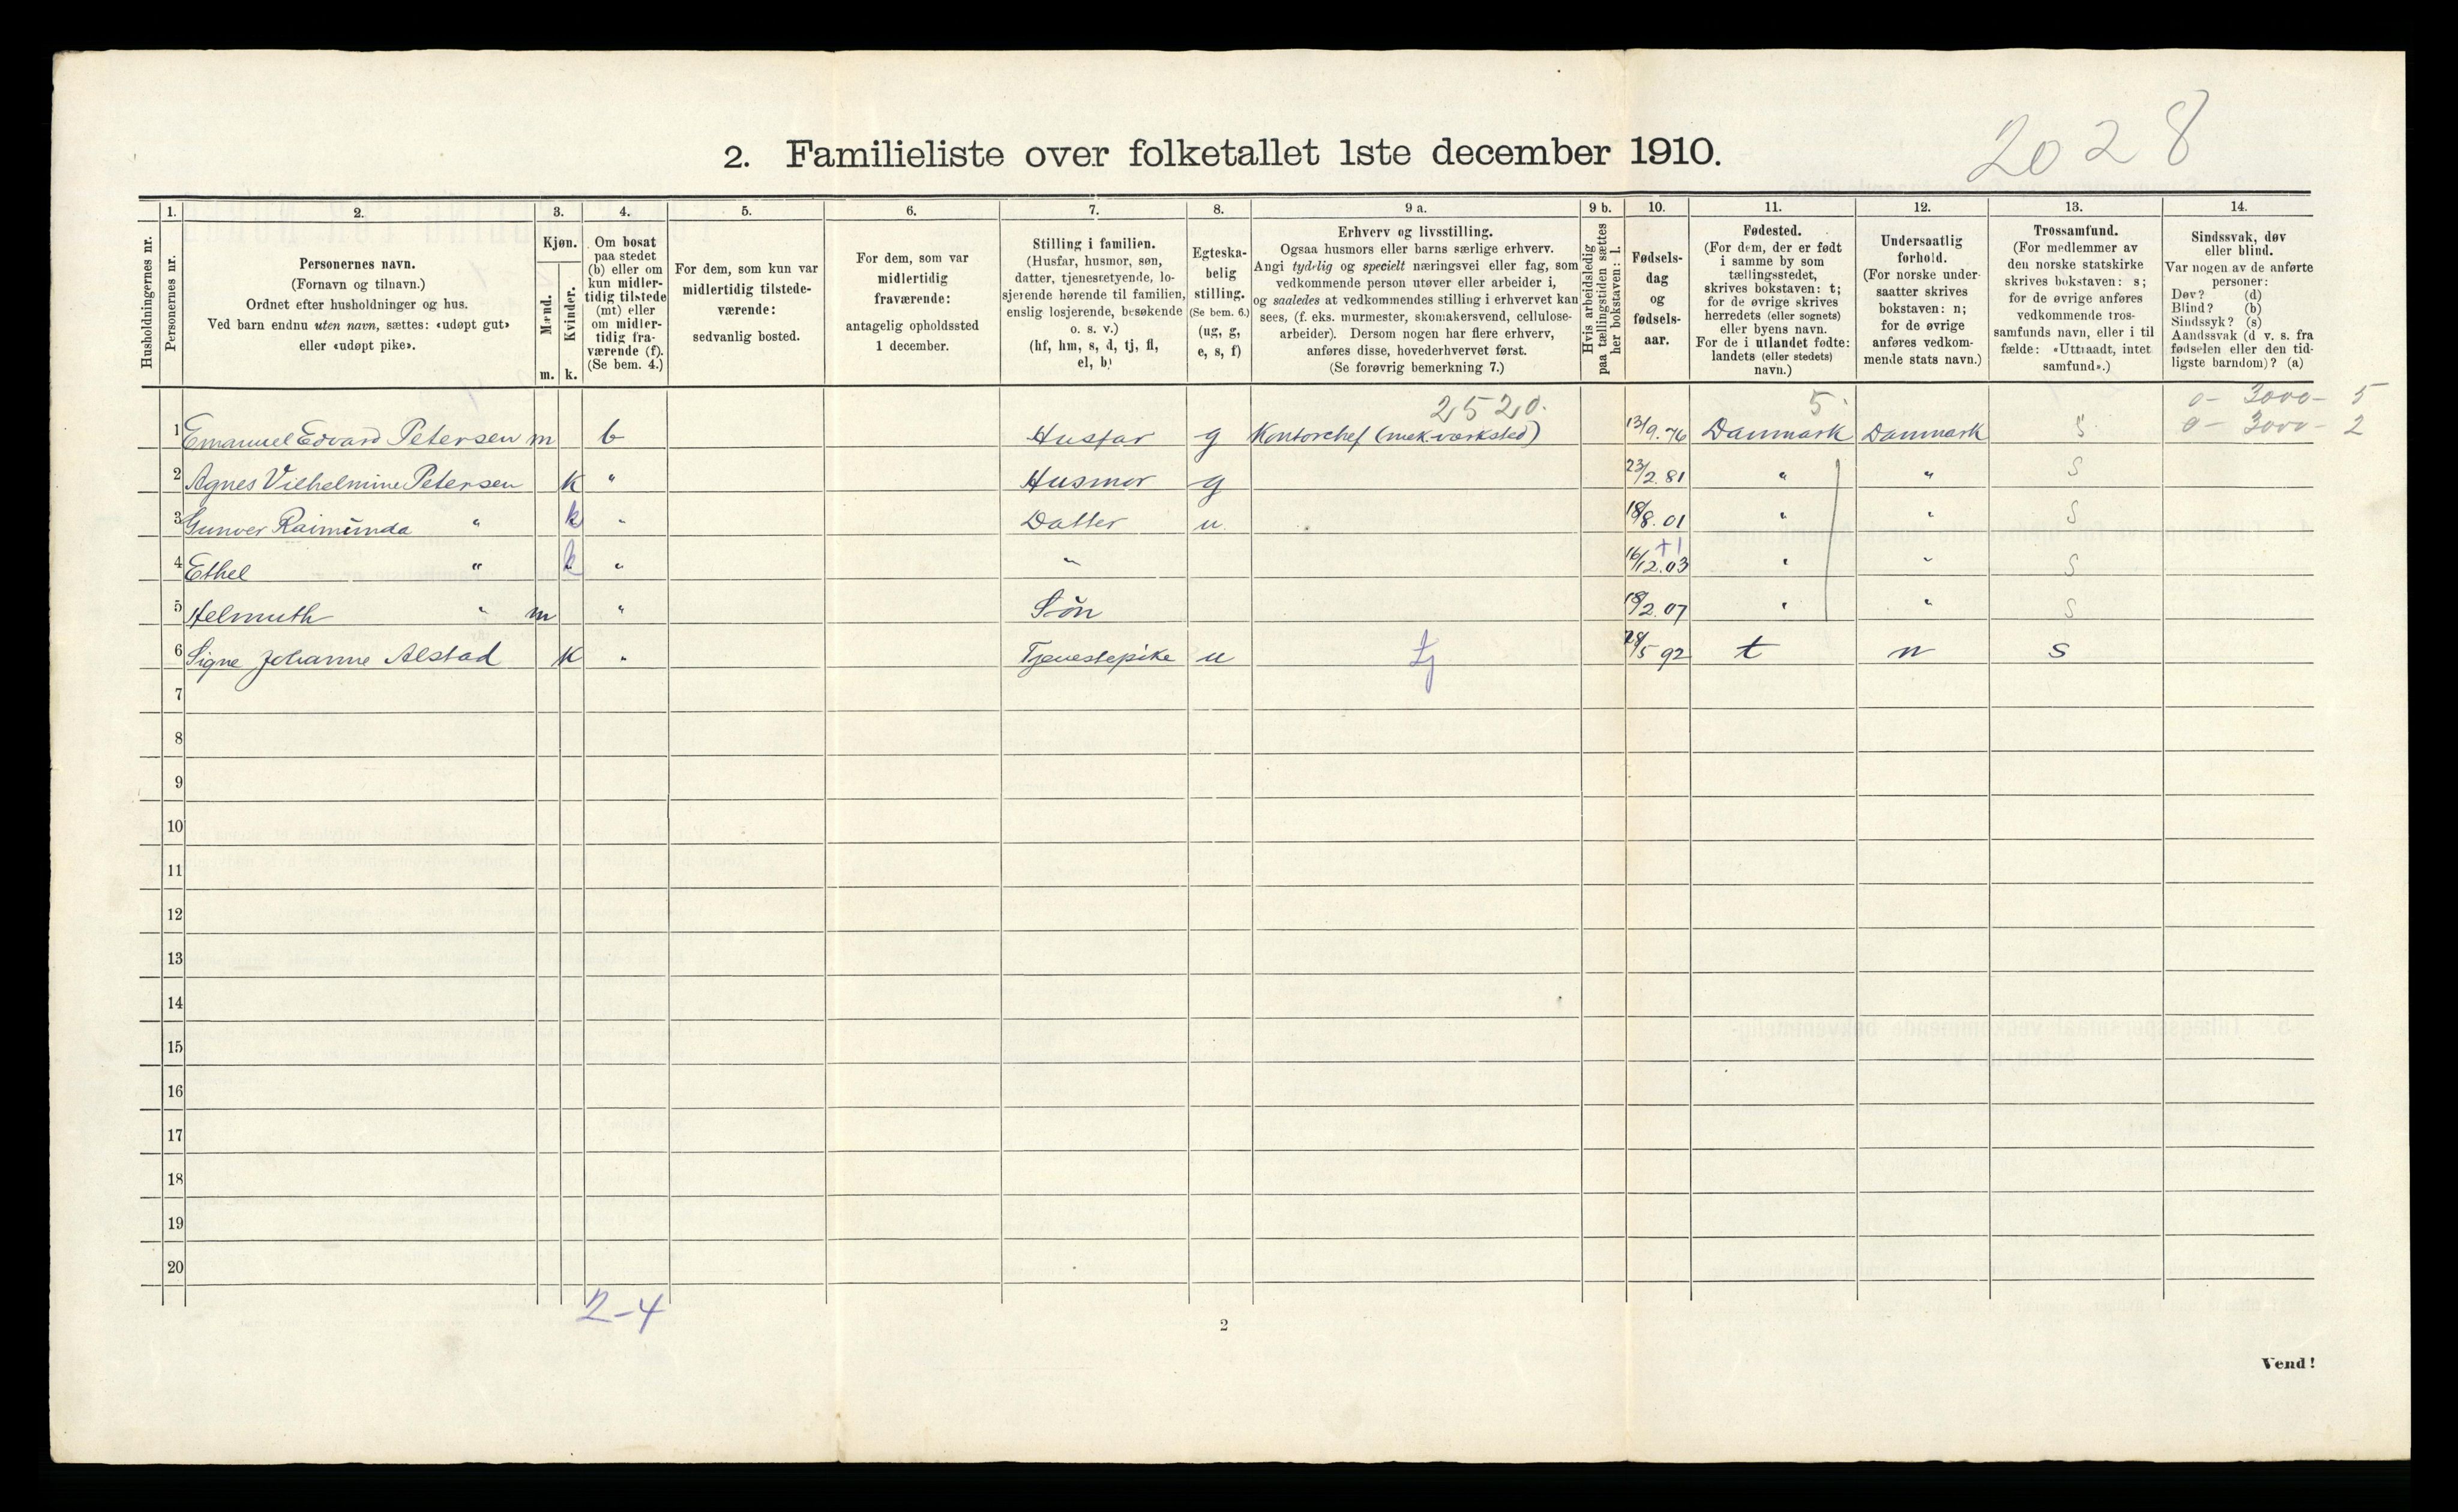 2028
2. Familieliste over folketallet 1ste december 1910.
Husholdningernes nr.
1. Personernes nr.
2. Personernes navn. (Fornavn og tilnavn.) Ordnet efter husholdninger og hus. Ved barn endnu uten navn, sættes: «udøpt gut» eller «udøpt pike».
3. Kjøn. Mænd. m. Kvinder. k.
4. Om bosat paa stedet (b) eller om kun midlertidig tilstede (mt) eller om midlertidig fraværende (f). (Se bem. 4.)
5. For dem, som kun var midlertidig tilstedeværende: sedvanlig bosted.
6. For dem, som var midlertidig fraværende: antagelig opholdssted 1 december.
7. Stilling i familien. (Husfar, husmor, søn, datter, tjenestetyende, losjerende hørende til familien, enslig losjerende, besøkende o. s. v.) (hf, hm, s, d, tj, fl, el, b)
8. Egteskabelig stilling. (Se bem. 6.) (ug, g, e, s, f)
9 a. Erhverv og livsstilling. Ogsaa husmors eller barns særlige erhverv. Angi tydelig og specielt næringsvei eller fag, som vedkommende person utøver eller arbeider i, og saaledes at vedkommendes stilling i erhvervet kan sees, (f. eks. murmester, skomakersvend, cellulosearbeider). Dersom nogen har flere erhverv, anføres disse, hovederhvervet først. (Se forøvrig bemerkning 7.)
9 b. Hvis arbeidsledig paa tællingstiden sættes her bokstaven: l.
10. Fødselsdag og fødselsaar.
11. Fødested. (For dem, der er født i samme by som tællingsstedet, skrives bokstaven: t; for de øvrige skrives herredets (eller sognets) eller byens navn. For de i utlandet fødte: landets (eller stedets) navn.)
12. Undersaatlig forhold. (For norske undersaatter skrives bokstaven: n; for de øvrige anføres vedkommende stats navn.)
13. Trossamfund. (For medlemmer av den norske statskirke skrives bokstaven: s; for de øvrige anføres vedkommende trossamfunds navn, eller i tilfælde: «Uttraadt, intet samfund».)
14. Sindssvak, døv eller blind. Var nogen av de anførte personer: Døv? (d) Blind? (b) Sindssyk? (s) Aandssvak (d v. s. fra fødselen eller den tidligste barndom)? (a)
2520. 5. 0 - 3000 - 5
1 Emanuel Edvard Petersen m b Husfar g Kontorchef (mek. værksted) 13/9.76 Danmark Danmark S 0 - 3000 - 2
2 Agnes Vilhelmine Petersen k " Husmor g 23/2.81 " " S
3 Gunver Raimunda " k " Datter u. 18/8.01 " " S
4 Ethel " k " " 16/12.03 +1 " " S
5 Helmuth " m " Søn 18/2.07 " " S
6 Signe Johanne Alstad k " Tjenestepike u tj 28/5 92 t n s
7
8
9
10
11
12
13
14
15
16
17
18
19
20
2-4
2
Vend!